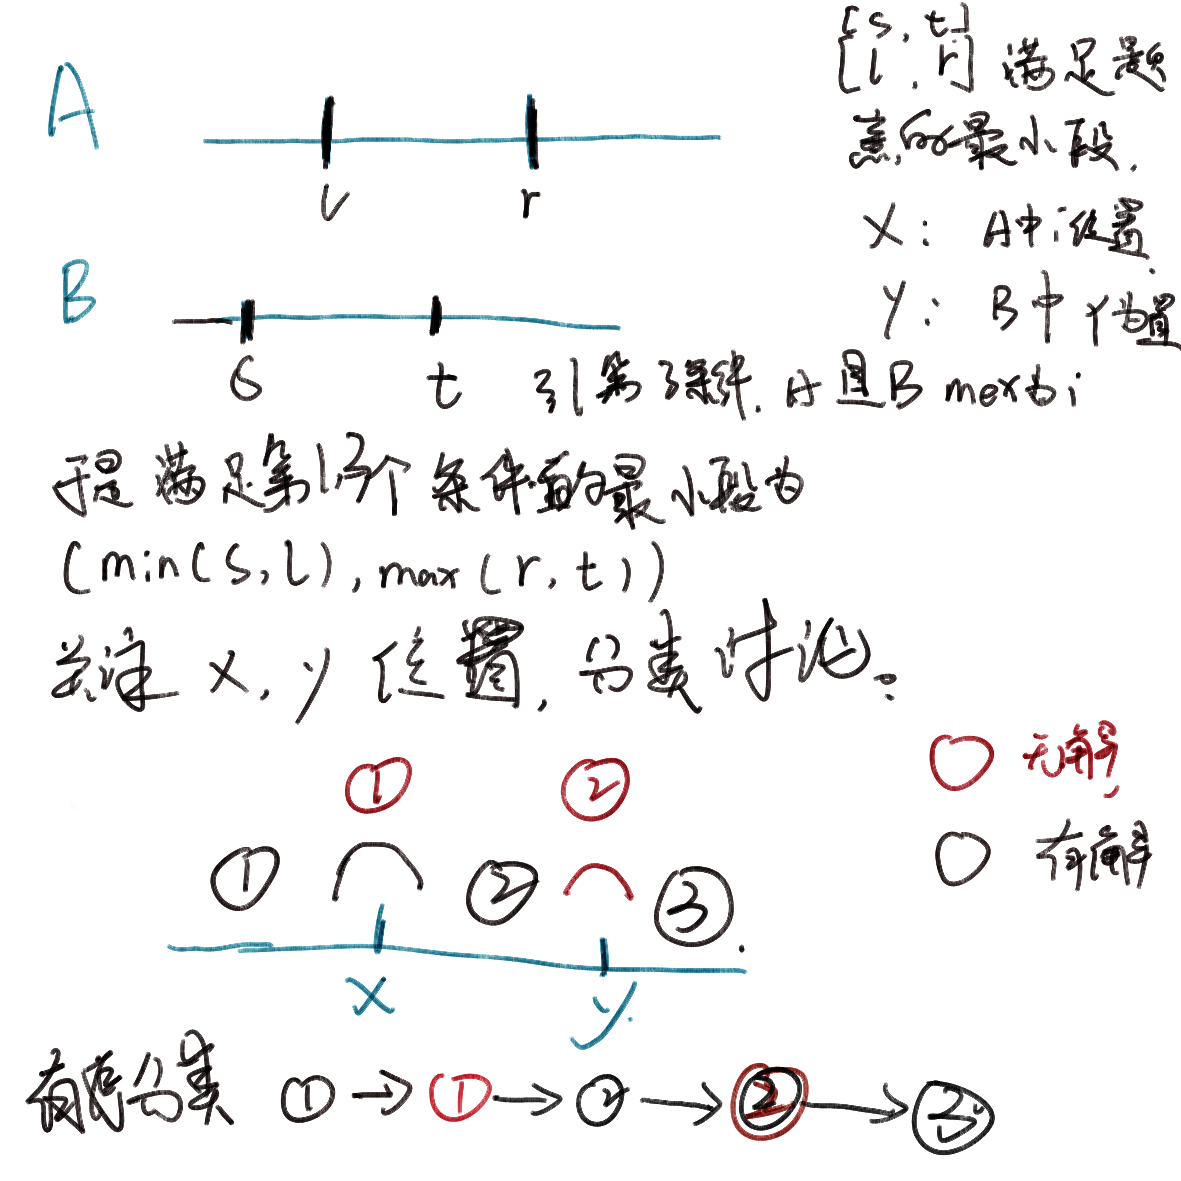 A
l r
B
s t
[s, t]
[l, r] 满足题
意的最小段.
x: A中i位置.
y: B中i位置
引第3条件. A且B mex为i
于是 满足第1,3个条件的最小段为
(min(s,l), max(r,t))
关注 x, y 位置, 分类讨论.
① ②
无解
① ② ③
有解
x y
有序分类 ① → ① → ② → ② → ③